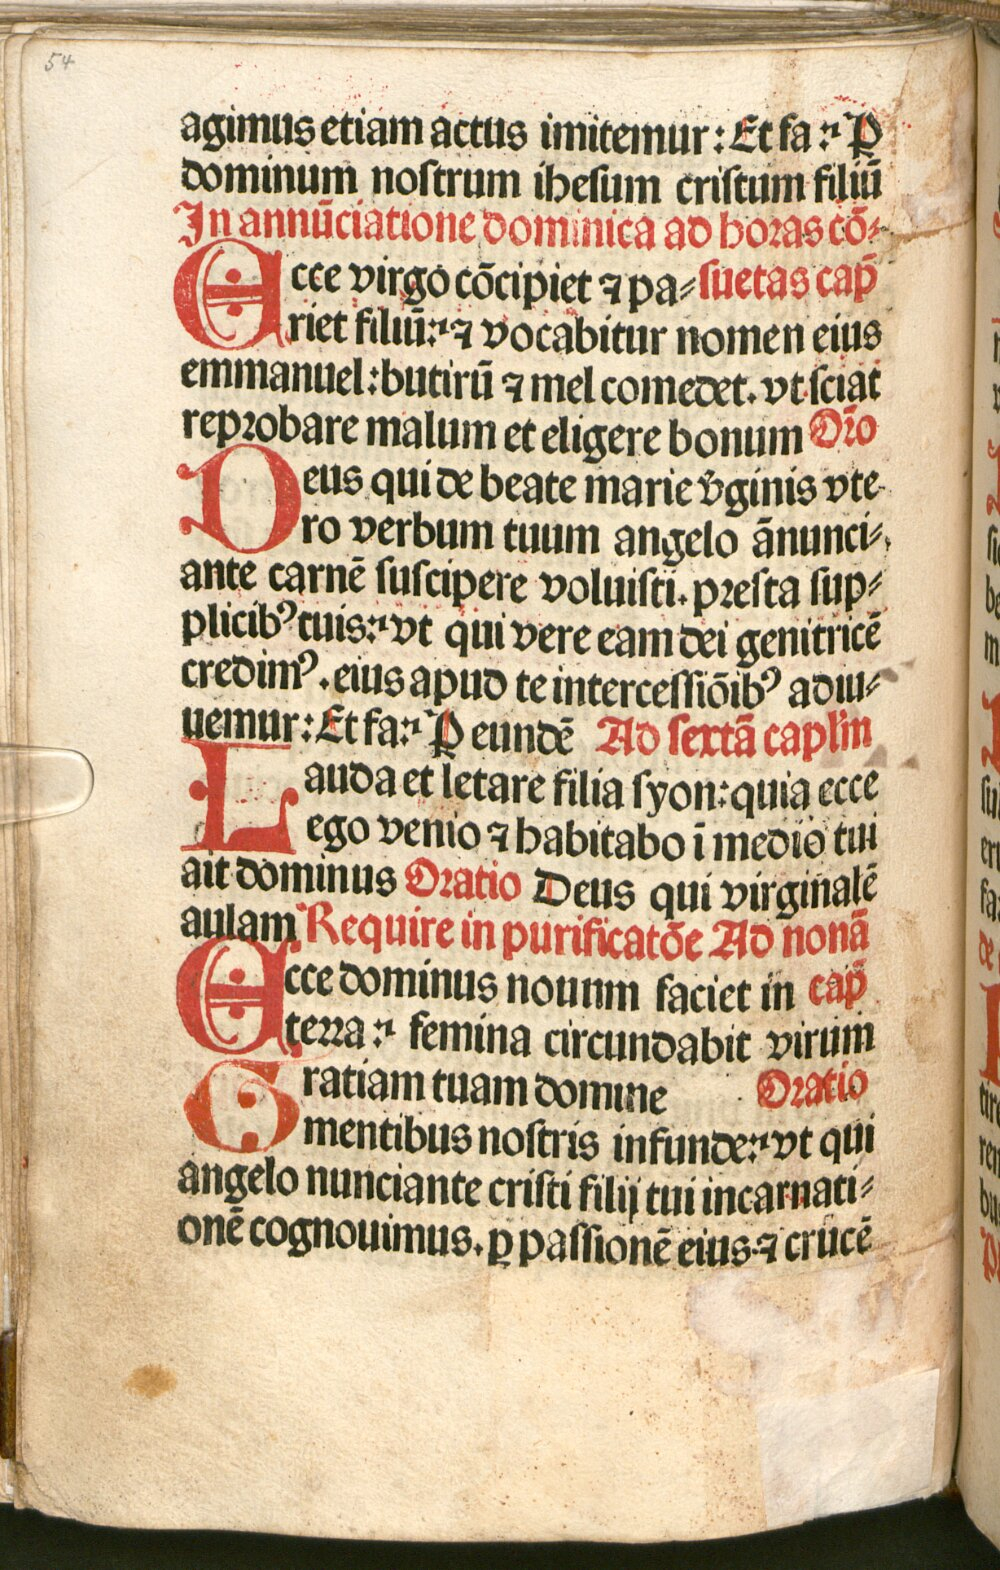 54
agimus etiam actus imitemur: Et fa⁊ P
dominum nostrum ihesum cristum filiū
In annūciatione dominica ad horas cō⸗
Ecce virgo cōcipiet ⁊ pa⸗ suetas cap̄
riet filiū: ⁊ vocabitur nomen eius
emmanuel: butirū ⁊ mel comedet. vt sciat
reprobare malum et eligere bonum Oīo
Deus qui de beate marie v̄ginis vte
ro verbum tuum angelo ānunci⸗
ante carnē suscipere voluisti. presta sup⸗
plicibꝰ tuis: vt qui vere eam dei genitricē
credimꝰ. eius apud te intercessiōibꝰ adiu⸗
uemur: Et fa: P eundē Ad sextā caplm̄
Lauda et letare filia syon: quia ecce
ego venio ⁊ habitabo ī medio tui
ait dominus Oratio Deus qui virginalē
aulam Require in purificatōe Ad nonā
Ecce dominus nouum faciet in cap̄
terra: femina circundabit virum
Gratiam tuam domine Oratio
mentibus nostris infunde: vt qui
angelo nunciante cristi filij tui incarnati⸗
onē cognouimus. ꝑ passionē eius ⁊ crucē